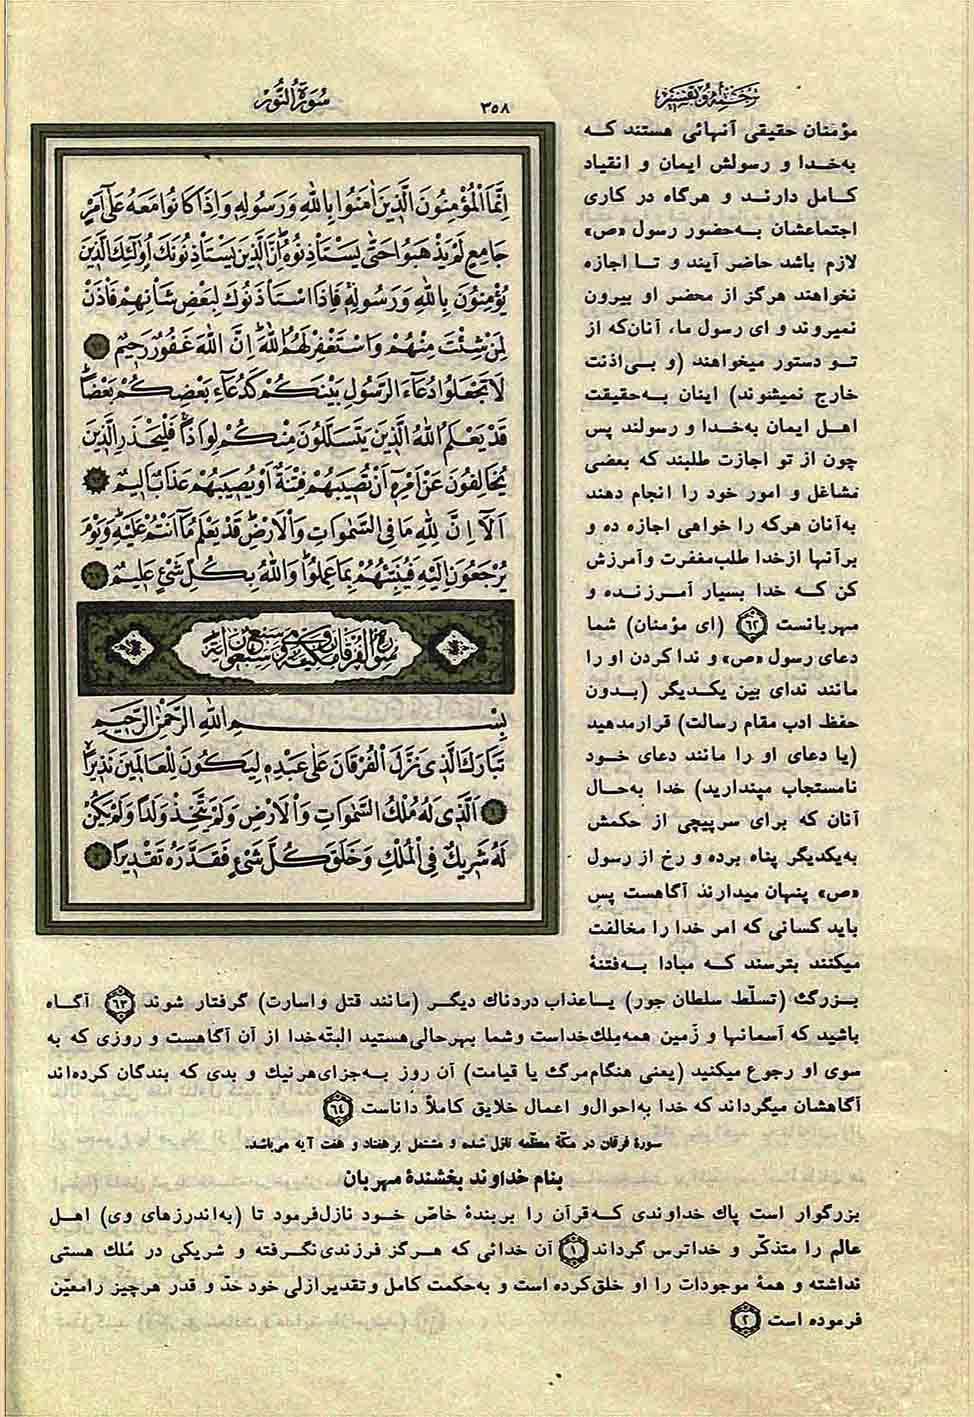 ترجمه و تفسیر
۳۵۸
سُورَةُ النُّورِ
اِنَّمَا الْمُؤْمِنُونَ الَّذِينَ اٰمَنُوا بِاللّٰهِ وَرَسُولِهِ وَاِذَا كَانُوا مَعَهُ عَلٰى اَمْرٍ
جَامِعٍ لَمْ يَذْهَبُوا حَتّٰى يَسْتَأْذِنُوهُ اِنَّ الَّذِينَ يَسْتَأْذِنُونَكَ اُولٰئِكَ الَّذِينَ
يُؤْمِنُونَ بِاللّٰهِ وَرَسُولِهِ فَاِذَا اسْتَأْذَنُوكَ لِبَعْضِ شَأْنِهِمْ فَأْذَنْ
لِمَنْ شِئْتَ مِنْهُمْ وَاسْتَغْفِرْ لَهُمُ اللّٰهَ اِنَّ اللّٰهَ غَفُورٌ رَحِيمٌ
لَا تَجْعَلُوا دُعَاءَ الرَّسُولِ بَيْنَكُمْ كَدُعَاءِ بَعْضِكُمْ بَعْضًا
قَدْ يَعْلَمُ اللّٰهُ الَّذِينَ يَتَسَلَّلُونَ مِنْكُمْ لِوَاذًا فَلْيَحْذَرِ الَّذِينَ
يُخَالِفُونَ عَنْ اَمْرِهِ اَنْ تُصِيبَهُمْ فِتْنَةٌ اَوْ يُصِيبَهُمْ عَذَابٌ اَلِيمٌ
اَلَا اِنَّ لِلّٰهِ مَا فِي السَّمٰوَاتِ وَالْاَرْضِ قَدْ يَعْلَمُ مَا اَنْتُمْ عَلَيْهِ وَيَوْمَ
يُرْجَعُونَ اِلَيْهِ فَيُنَبِّئُهُمْ بِمَا عَمِلُوا وَاللّٰهُ بِكُلِّ شَيْءٍ عَلِيمٌ
سورة الفرقان مكية وهي سبع وسبعون اية
بِسْمِ اللّٰهِ الرَّحْمٰنِ الرَّحِيمِ
تَبَارَكَ الَّذِي نَزَّلَ الْفُرْقَانَ عَلٰى عَبْدِهِ لِيَكُونَ لِلْعَالَمِينَ نَذِيرًا
اَلَّذِي لَهُ مُلْكُ السَّمٰوَاتِ وَالْاَرْضِ وَلَمْ يَتَّخِذْ وَلَدًا وَلَمْ يَكُنْ
لَهُ شَرِيكٌ فِي الْمُلْكِ وَخَلَقَ كُلَّ شَيْءٍ فَقَدَّرَهُ تَقْدِيرًا
مؤمنان حقیقی آنهائی هستند که
به‌خدا و رسولش ایمان و انقیاد
کامل دارند و هرگاه در کاری
اجتماعشان به‌حضور رسول «ص»
لازم باشد حاضر آیند و تا اجازه
نخواهند هرگز از محضر او بیرون
نمیروند و ای رسول ما، آنان‌که از
تو دستور میخواهند (و بی‌اذنت
خارج نمیشوند) اینان به‌حقیقت
اهل ایمان به‌خدا و رسولند پس
چون از تو اجازت طلبند که بعضی
مشاغل و امور خود را انجام دهند
به‌آنان هرکه را خواهی اجازه ده و
برآنها ازخدا طلب‌مغفرت وآمرزش
کن که خدا بسیار آمرزنده و
مهربانست ۶۲ (ای مؤمنان) شما
دعای رسول «ص» و ندا کردن او را
مانند ندای بین یکدیگر (بدون
حفظ ادب مقام رسالت) قرارمدهید
(یا دعای او را مانند دعای خود
نامستجاب مپندارید) خدا به‌حال
آنان که برای سرپیچی از حکمش
به‌یکدیگر پناه برده و رخ از رسول
«ص» پنهان میدارند آگاهست پس
باید کسانی که امر خدا را مخالفت
میکنند بترسند که مبادا به‌فتنهٔ
بزرگ (تسلّط سلطان جور) یاعذاب دردناك دیگر (مانند قتل واسارت) گرفتار شوند ۶۳ آگاه
باشید که آسمانها و زمین همه‌ملك‌خداست وشما بهرحالی‌هستید البتّه‌خدا از آن آگاهست و روزی که به
سوی او رجوع میکنید (یعنی هنگام‌مرگ یا قیامت) آن روز به‌جزای‌هرنیك و بدی که بندگان کرده‌اند
آگاهشان میگرداند که خدا به‌احوال‌و اعمال خلایق کاملاً داناست ۶۴
سورهٔ فرقان در مکّهٔ معظّمه نازل شده و مشتمل برهفتاد و هفت آیه می‌باشد.
بنام خداوند بخشندهٔ مهربان
بزرگوار است پاك خداوندی که‌قرآن را بربندهٔ خاصّ خود نازل‌فرمود تا (به‌اندرزهای وی) اهل
عالم را متذکّر و خداترس گرداند ۱ آن خدائی که هرگز فرزندی‌نگرفته و شریکی در مُلك هستی
نداشته و همهٔ موجودات را او خلق‌کرده است و به‌حکمت کامل وتقدیرازلی خود حدّ و قدر هرچیز رامعیّن
فرموده است ۲